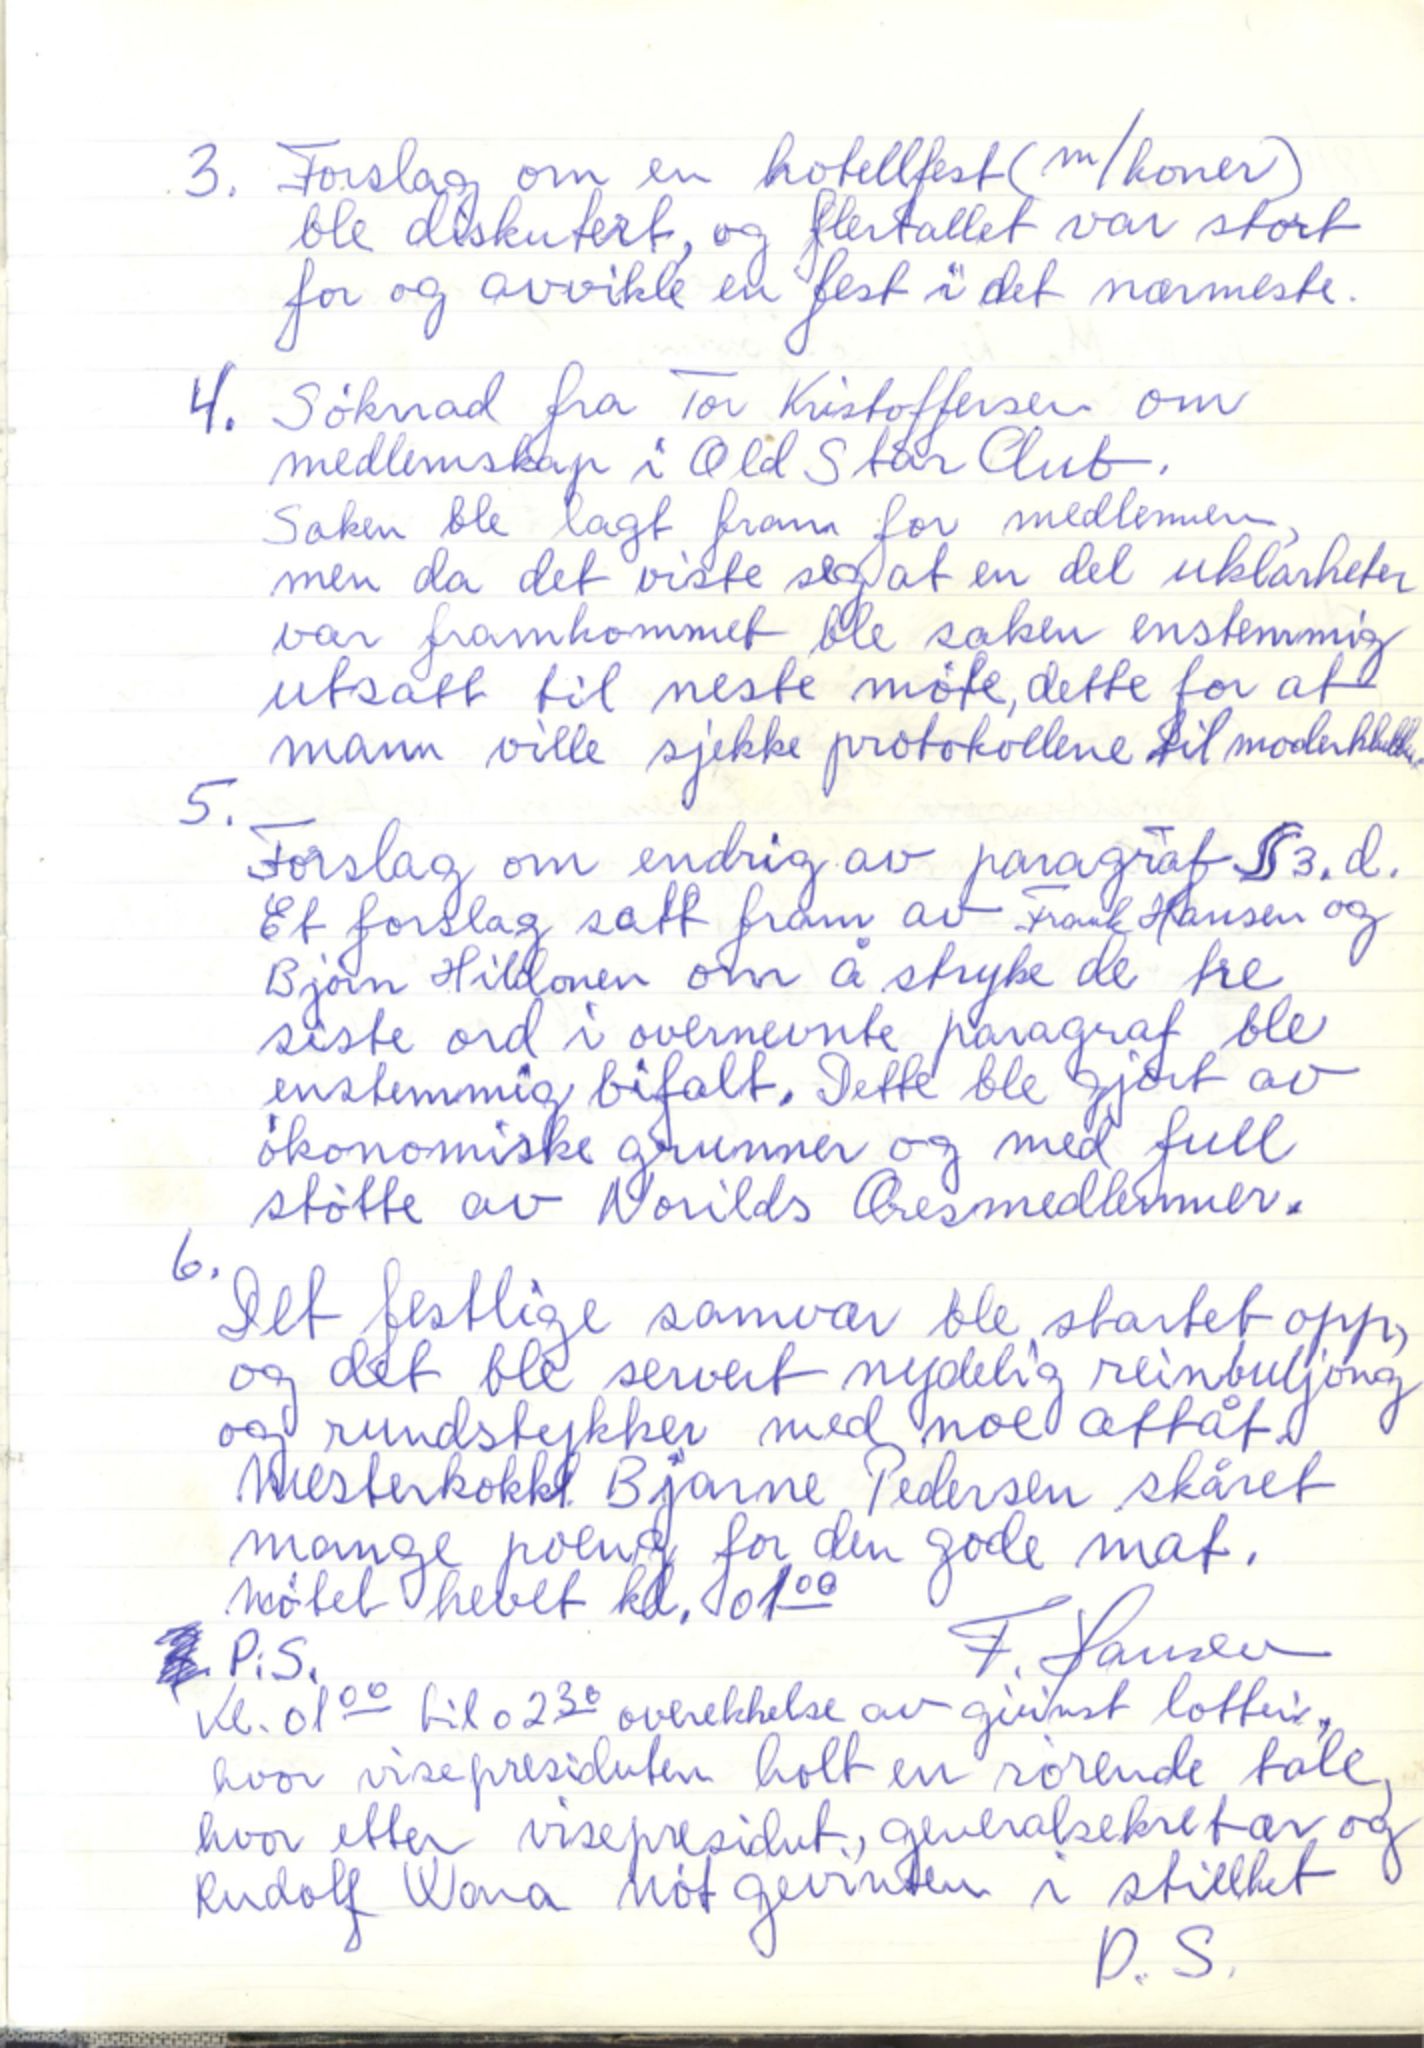 3. Forslag om en hotellfest (m/koner)
ble diskutert, og flertallet var stort
for og avvikle en fest i det nærmeste.
4. Söknad fra Tor Kristoffersen om
medlemskap i Old Star Club.
Saken ble lagt fram for medlemmen,
men da det viste seg at en del uklarheter
var framkommet ble saken enstemmig
utsatt til neste möte, dette for at
mann ville sjekke protokollene til
5.
Forslag om endrig av paragraf §3. d.
Et forslag satt fram av Frank Hansen og
Björn Hildonen om å stryke de tre
siste ord i overnevnte paragraf ble
enstemmig bifalt. Dette ble gjort av
ökonomiske grunner og med full
stötte av Norilds Æresmedlemmer.
6.
Det festlige samvær ble startet opp,
og det ble servert nydelig reinbuljong
og rundstykker med noe attåt.
Mesterkokk Bjarne Pedersen skåret
mange poeng for den gode mat.
Mötet hevet kl. 01⁰⁰
P.S. F. Hansen
Kl. 01⁰⁰ til 02³⁰ overekkelse av givinst lotteri,
hvor visepresidenten holt en rörende tale,
hvor etter visepresident, generalsekretær og
Rudolf Wara nöt gevinten i stillhet
D. S.